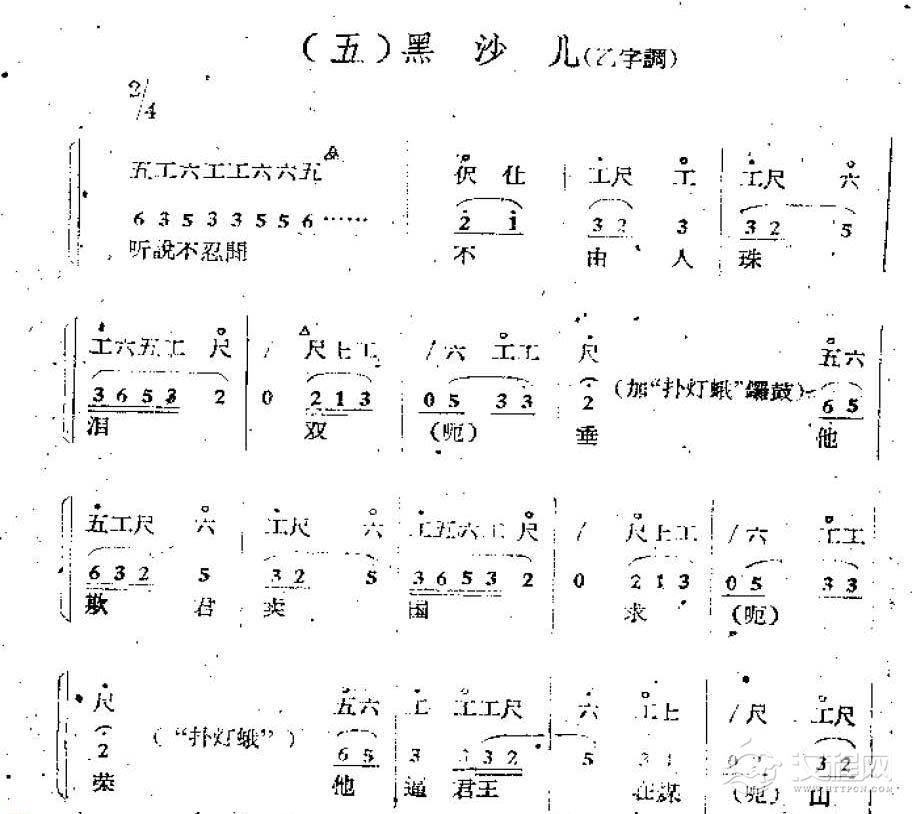 （五）黑沙儿(乙字調)
2/4
五工六工工六六五 伬 仩 工尺 工 工尺 六
6 3 5 3 3 5 5 6 …… 2 1 3 2 3 3 2 5
听說不忍聞 不 由 人 珠
工六五工 尺 / 尺上工 / 六 工工 尺 五六
3 6 5 3 2 0 2 1 3 0 5 3 3 2 (加“扑灯蛾”鑼鼓) 6 5
泪 双 (呃) 垂 他
五工尺 六 工尺 六 工五六工 尺 / 尺上工 / 六 工工
6 3 2 5 3 2 5 3 6 5 3 2 0 2 1 3 0 5 3 3
欺 君 卖 国 求 (呃)
尺 五六 工 工工尺 六 工上 / 尺 工尺
2 (“扑灯蛾”) 6 5 3 3 3 2 5 3 1 0 3 2
荣 他 逼 君王 在謀 (呃) 山
文程网
WWW.HTTPCN.COM